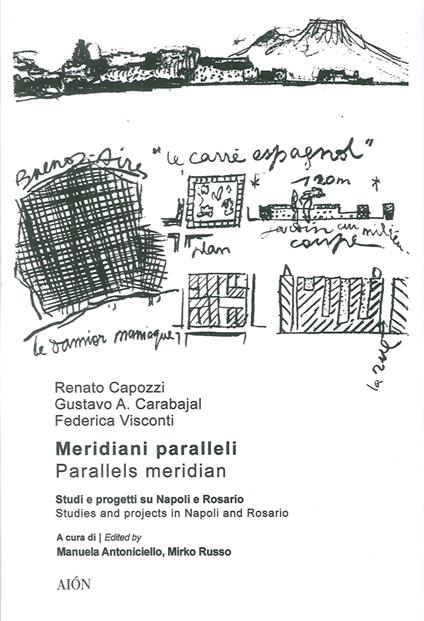 Buenos-Aires
"le carré espagnol"
120m
plan
jardin au milieu
coupe
le damier maniaque
la rue
Renato Capozzi
Gustavo A. Carabajal
Federica Visconti
Meridiani paralleli
Parallels meridian
Studi e progetti su Napoli e Rosario
Studies and projects in Napoli and Rosario
A cura di | Edited by
Manuela Antoniciello, Mirko Russo
AIÓN